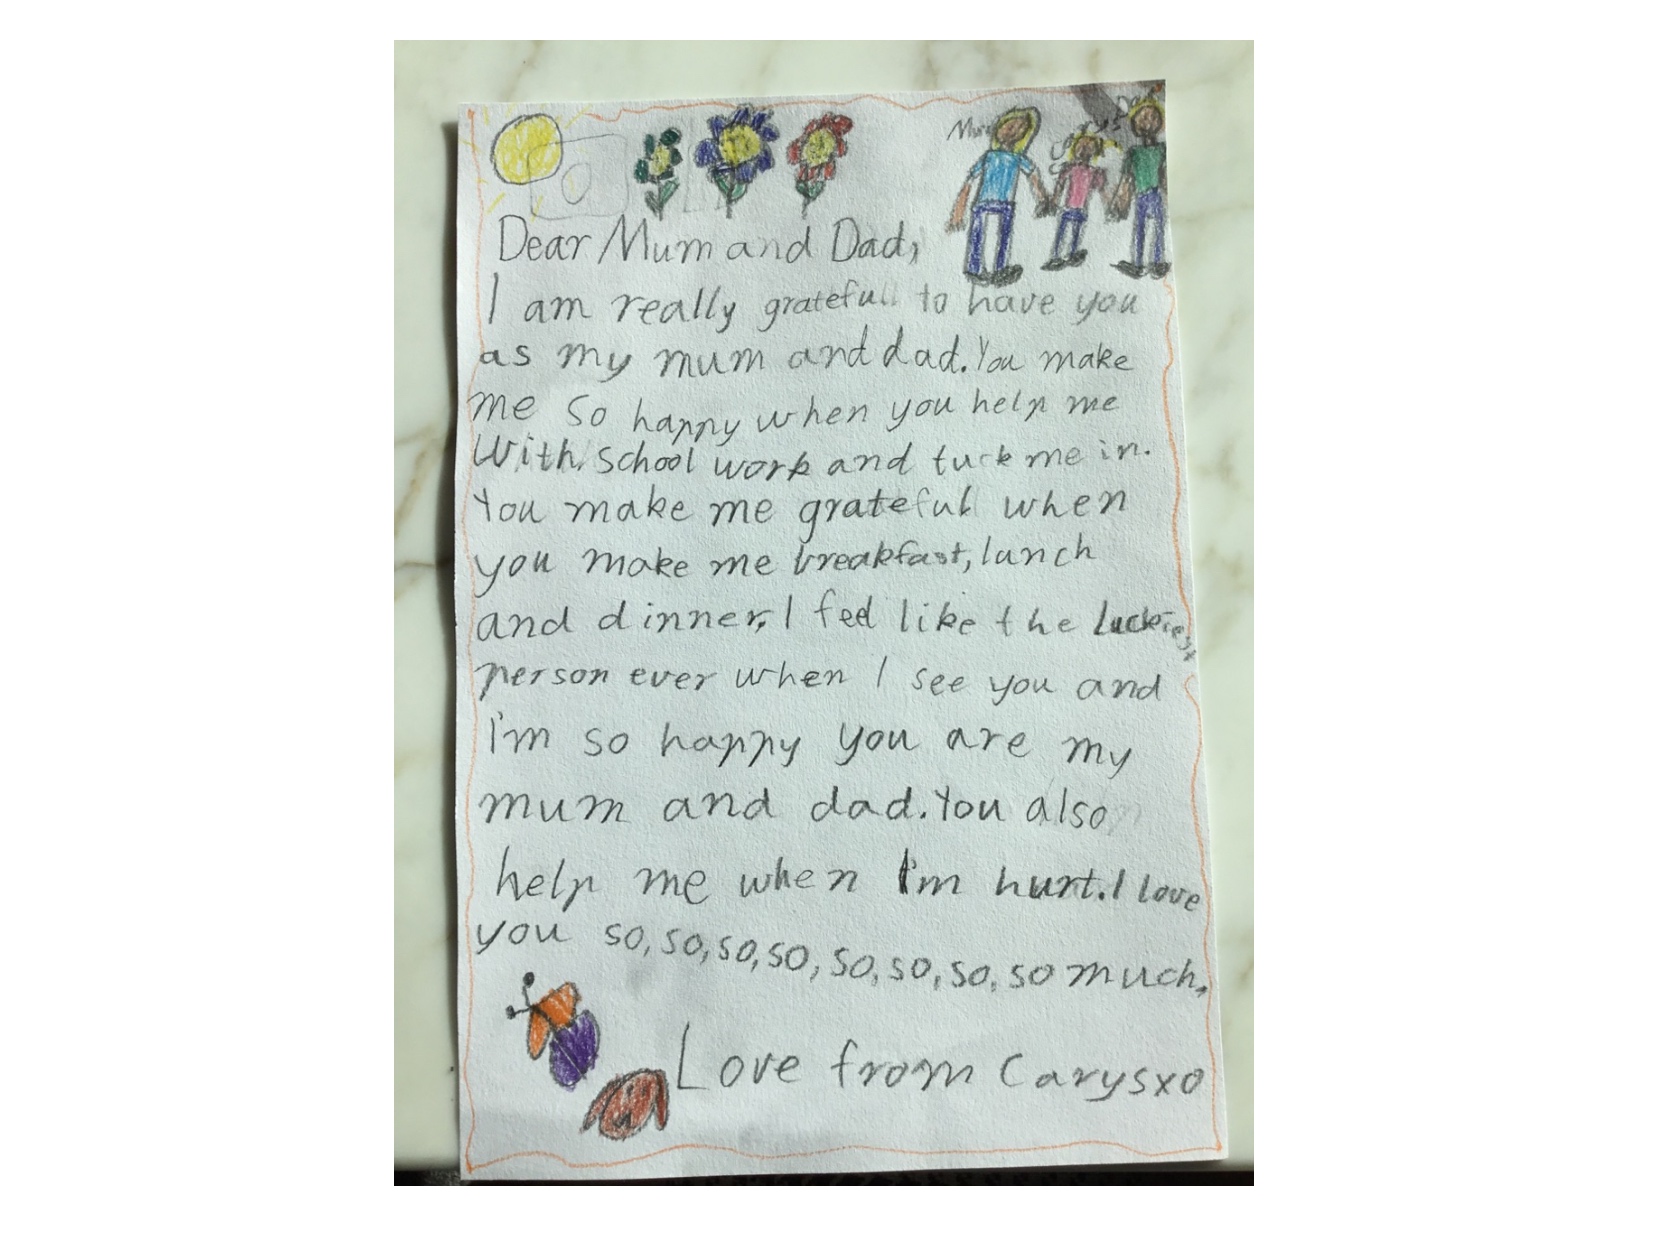 Mum Carys Dad
Dear Mum and Dad,
I am really grateful to have you
as my mum and dad. You make
me so happy when you help me
With school work and tuck me in.
You make me grateful when
you make me breakfast, lunch
and dinner, I feel like the luckiest
person ever when I see you and
I'm so happy you are my
mum and dad. You also
help me when I'm hurt. I love
you so, so, so, so, so, so, so, so much.
Love from Carysxo